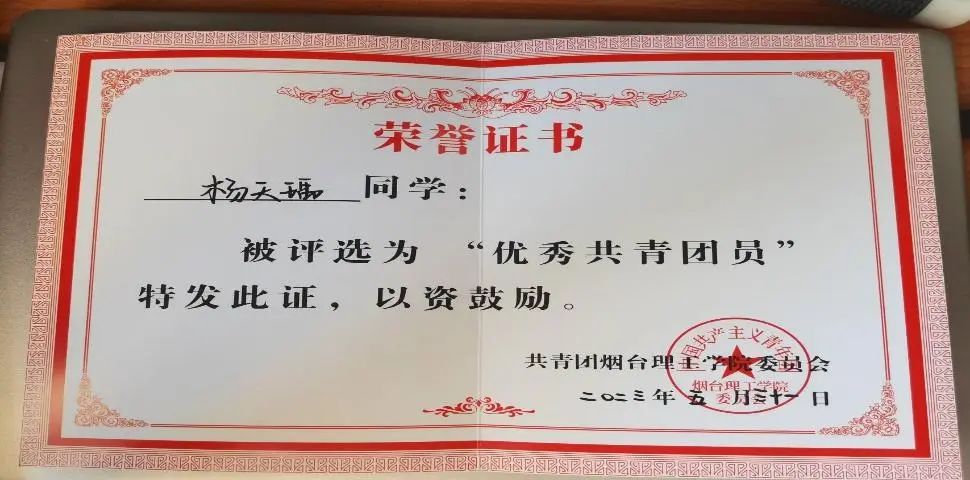 荣誉证书
杨天瑞 同学：
被评选为“优秀共青团员”
特发此证，以资鼓励。
共青团烟台理工学院委员会
二〇二三年五月三十一日
中国共产主义青年团
烟台理工学院
委员会